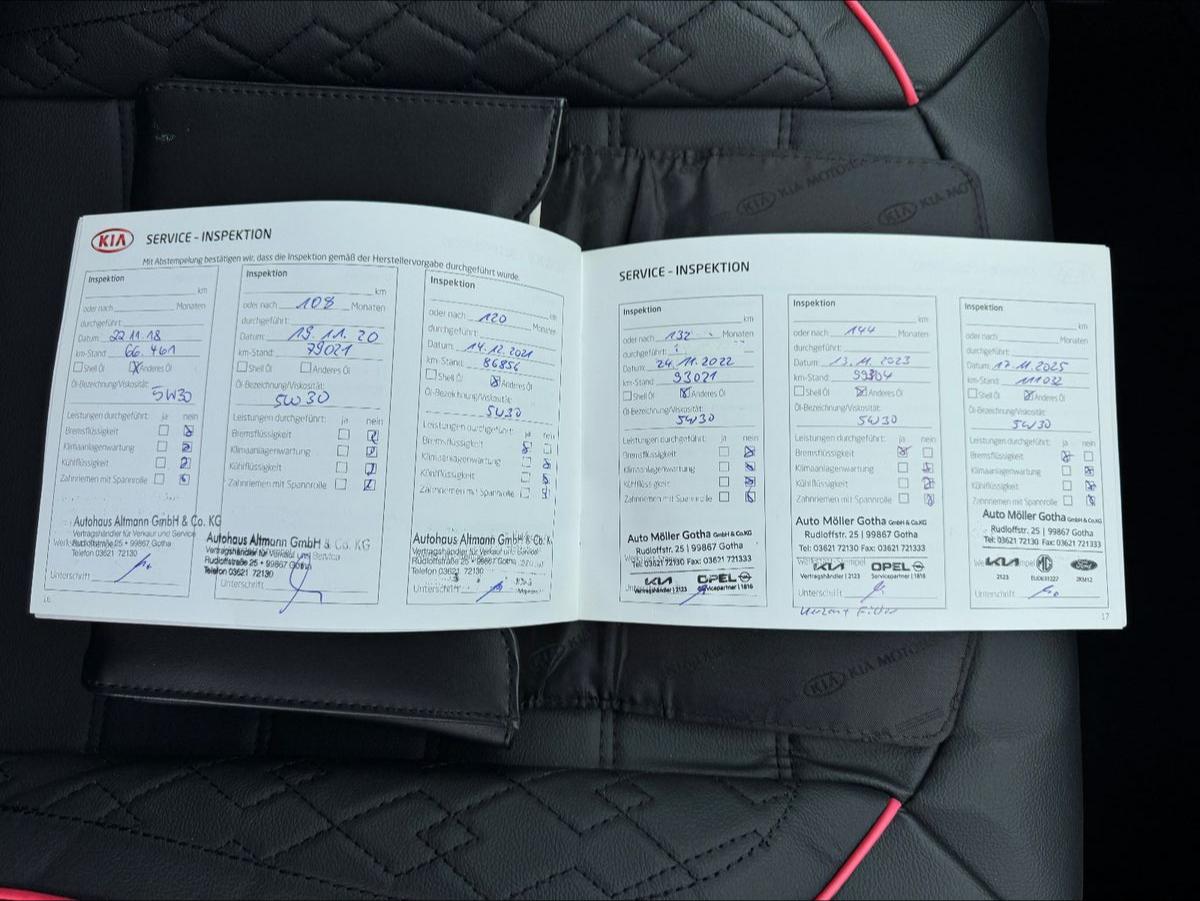 KIA MOTORS
KIA MOT
KIA SERVICE - INSPEKTION
Mit Abstempelung bestätigen wir, dass die Inspektion gemäß der Herstellervorgabe durchgeführt wurde.
Inspektion
km
oder nach Monaten
durchgeführt:
Datum 22.11.18
km-Stand: 66.461
Shell Öl Anderes Öl
Öl-Bezeichnung/Viskosität:
5W30
Leistungen durchgeführt: ja nein
Bremsflüssigkeit
Klimaanlagenwartung
Kühlflüssigkeit
Zahnriemen mit Spannrolle
Autohaus Altmann GmbH & Co. KG
Vertragshändler für Verkauf und Service
Rudloffstraße 25 • 99867 Gotha
Telefon 03621 72130
Unterschrift
16
Inspektion
km
oder nach 108 Monaten
durchgeführt:
Datum: 19.11.20
km-Stand: 79021
Shell Öl Anderes Öl
Öl-Bezeichnung/Viskosität:
5W30
Leistungen durchgeführt: ja nein
Bremsflüssigkeit
Klimaanlagenwartung
Kühlflüssigkeit
Zahnriemen mit Spannrolle
Autohaus Altmann GmbH & Co. KG
Vertragshändler für Verkauf und Service
Rudloffstraße 25 • 99867 Gotha
Telefon 03621 72130
Unterschrift
Inspektion
km
oder nach 120 Monaten
durchgeführt:
Datum: 14.12.2021
km-Stand: 86856
Shell Öl Anderes Öl
Öl-Bezeichnung/Viskosität:
5W30
Leistungen durchgeführt: ja nein
Bremsflüssigkeit
Klimaanlagenwartung
Kühlflüssigkeit
Zahnriemen mit Spannrolle
Autohaus Altmann GmbH & Co. K
Vertragshändler für Verkauf und Service
Rudloffstraße 25 • 99867 Gotha
Telefon 03621 72130
Unterschrift
SERVICE - INSPEKTION
Inspektion
km
oder nach 132 Monaten
durchgeführt:
Datum: 24.11.2022
km-Stand: 93021
Shell Öl Anderes Öl
Öl-Bezeichnung/Viskosität:
5W30
Leistungen durchgeführt: ja nein
Bremsflüssigkeit
Klimaanlagenwartung
Kühlflüssigkeit
Zahnriemen mit Spannrolle
Auto Möller Gotha GmbH & Co.KG
Rudloffstr. 25 | 99867 Gotha
Tel: 03621 72130 Fax: 03621 721333
KIA OPEL
Vertragshändler | 2123 Servicepartner | 1816
Inspektion
km
oder nach 144 Monaten
durchgeführt:
Datum: 13.11.2023
km-Stand: 99304
Shell Öl Anderes Öl
Öl-Bezeichnung/Viskosität:
5W30
Leistungen durchgeführt: ja nein
Bremsflüssigkeit
Klimaanlagenwartung
Kühlflüssigkeit
Zahnriemen mit Spannrolle
Auto Möller Gotha GmbH & Co.KG
Rudloffstr. 25 | 99867 Gotha
Tel: 03621 72130 Fax: 03621 721333
KIA OPEL
Vertragshändler | 2123 Servicepartner | 1816
Unterschrift
Filter
Inspektion
km
oder nach Monaten
durchgeführt:
Datum: 17.11.2025
km-Stand: 111032
Shell Öl Anderes Öl
Öl-Bezeichnung/Viskosität:
5W30
Leistungen durchgeführt: ja nein
Bremsflüssigkeit
Klimaanlagenwartung
Kühlflüssigkeit
Zahnriemen mit Spannrolle
Auto Möller Gotha GmbH & Co.KG
Rudloffstr. 25 | 99867 Gotha
Tel: 03621 72130 Fax: 03621 721333
KIA MG Ford
2123
Unterschrift
17
KIA MOTO